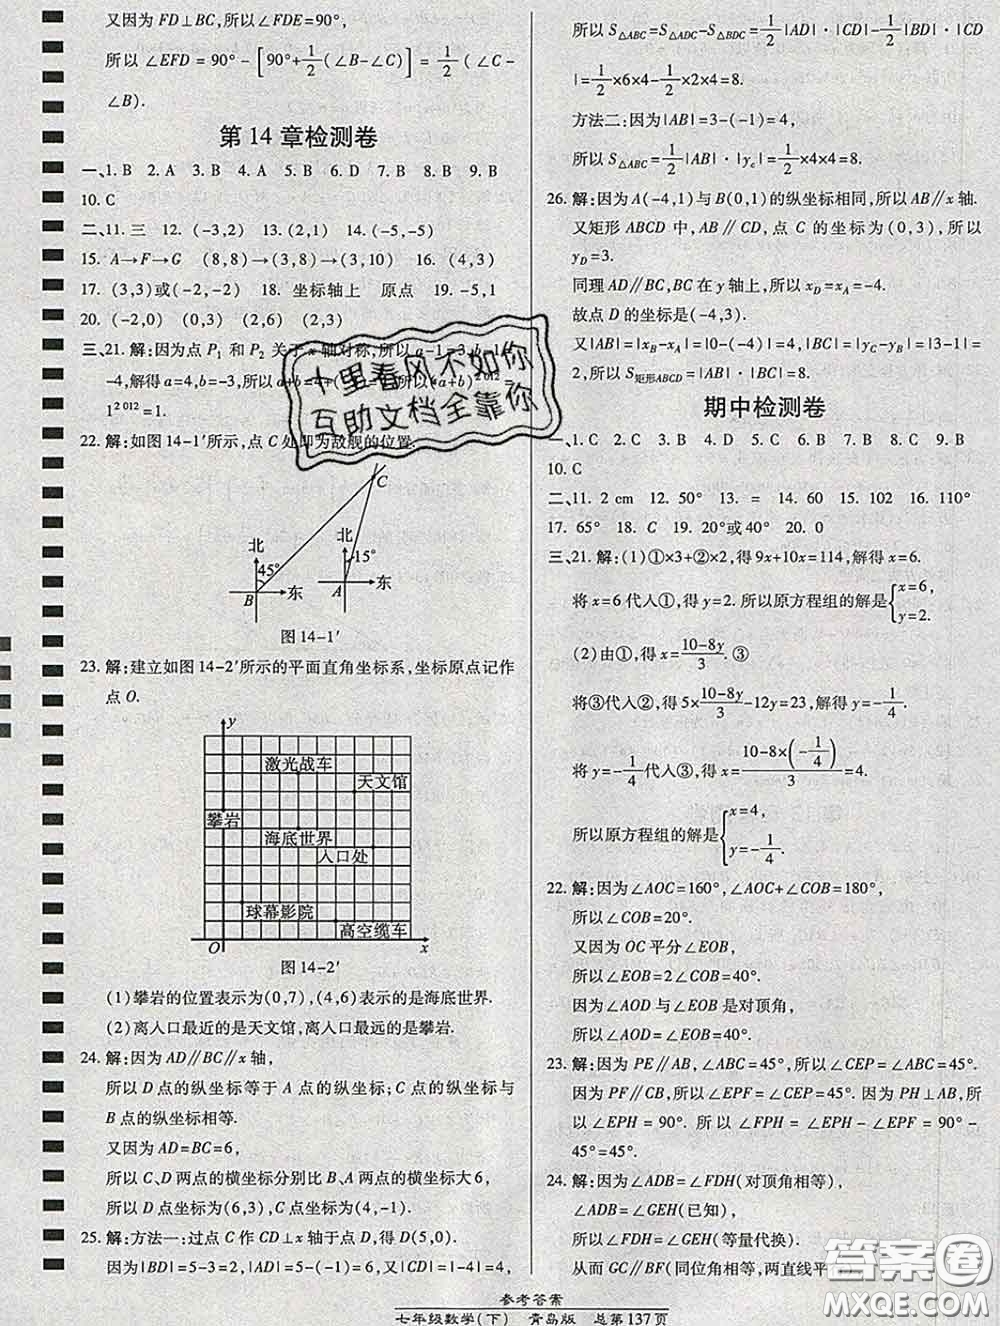 又因为 FD⊥BC,所以∠FDE=90°,
所以∠EFD=90°-[90°+1/2(∠B-∠C)]=1/2(∠C-
∠B).
第14章检测卷
一、1. B 2. A 3. B 4. A 5. B 6. D 7. B 8. B 9. B
10. C
二、11. 三 12. (-3,2) 13. (2,1) 14. (-5,-5)
15. A→F→G (8,8)→(3,8)→(3,4) 16. (4,3)
17. (3,3)或(-2,-2) 18. 坐标轴上 原点 19. -5,1
20. (-2,0) (0,3) (2,6) (2,3)
三、21. 解:因为点 P₁ 和 P₂ 关于 x 轴对称,所以 a-1=3,b-1=
-4,解得 a=4,b=-3,所以 a+b=4+(-3)=1,所以(a+b)²⁰¹²=
1²⁰¹²=1.
22. 解:如图 14-1′所示,点 C 处即为敌舰的位置.
C
北 北
45° 15°
B 东 A 东
图 14-1′
23. 解:建立如图 14-2′所示的平面直角坐标系,坐标原点记作
点 O.
y
激光战车
天文馆
攀岩
海底世界
入口处
球幕影院
高空缆车
O x
图 14-2′
(1)攀岩的位置表示为(0,7),(4,6)表示的是海底世界.
(2)离入口最近的是天文馆,离入口最远的是攀岩.
24. 解:因为 AD∥BC∥x 轴,
所以 D 点的纵坐标等于 A 点的纵坐标;C 点的纵坐标与
B 点的纵坐标相等.
又因为 AD=BC=6,
所以 C、D 两点的横坐标分别比 B、A 两点的横坐标大6,
所以 D 点坐标为(6,3),C 点坐标为(4,-1).
25. 解:方法一:过点 C 作 CD⊥x 轴于点 D,得 D(5,0).
因为|BD|=5-3=2,|AD|=5-(-1)=6,又|CD|=|-4|=4,
所以 S△ABC=S△ADC-S△BDC=1/2|AD|·|CD|-1/2|BD|·|CD
|=1/2×6×4-1/2×2×4=8.
方法二:因为|AB|=3-(-1)=4,
所以 S△ABC=1/2|AB|·|yc|=1/2×4×4=8.
26. 解:因为 A(-4,1)与 B(0,1)的纵坐标相同,所以 AB∥x 轴.
又矩形 ABCD 中,AB∥CD,点 C 的坐标为(0,3),所以
yD=3.
同理 AD∥BC,BC 在 y 轴上,所以 xD=xA=-4.
故点 D 的坐标是(-4,3).
又|AB|=|xB-xA|=|0-(-4)|=4,|BC|=|yC-yB|=|3-1|=
2,所以 S矩形ABCD=|AB|·|BC|=8.
期中检测卷
一、1. C 2. C 3. B 4. D 5. C 6. B 7. C 8. C 9. B
10. C
二、11. 2 cm 12. 50° 13. = 14. 25 15. 102 16. 110°
17. 65° 18. C 19. 20°或40° 20. 0
三、21. 解:(1)①×3+②×2,得 9x+10x=114,解得 x=6.
将 x=6 代入①,得 y=2. 所以原方程组的解是{x=6,
y=2.
(2)由①,得 x=(10-8y)/3. ③
将③代入②,得 5×(10-8y)/3-12y=23,解得 y=-1/4.
将 y=-1/4 代入③,得 x=(10-8×(-1/4))/3=4.
所以原方程组的解是{x=4,
y=-1/4.
22. 解:因为∠AOC=160°,∠AOC+∠COB=180°,
所以∠COB=20°.
又因为 OC 平分∠EOB,
所以∠EOB=2∠COB=40°.
因为∠AOD 与∠EOB 是对顶角,
所以∠AOD=∠EOB=40°.
23. 解:因为 PE∥AB,∠ABC=45°,所以∠CEP=∠ABC=45°.
因为 PF∥CB,所以∠EPF=∠CEP=45°. 因为 PH⊥AB,所
以∠EPH=90°. 所以∠FPH=∠EPH-∠EPF=90°-
45°=45°.
24. 解:因为∠ADB=∠FDH(对顶角相等),
∠ADB=∠GEH(已知),
所以∠FDH=∠GEH(等量代换).
从而 GC∥BF(同位角相等,两直线平行).
十里春风不如你
互助文档全靠你
答案圈
MXQE.COM
参考答案
七年级数学(下) 青岛版 总第137页